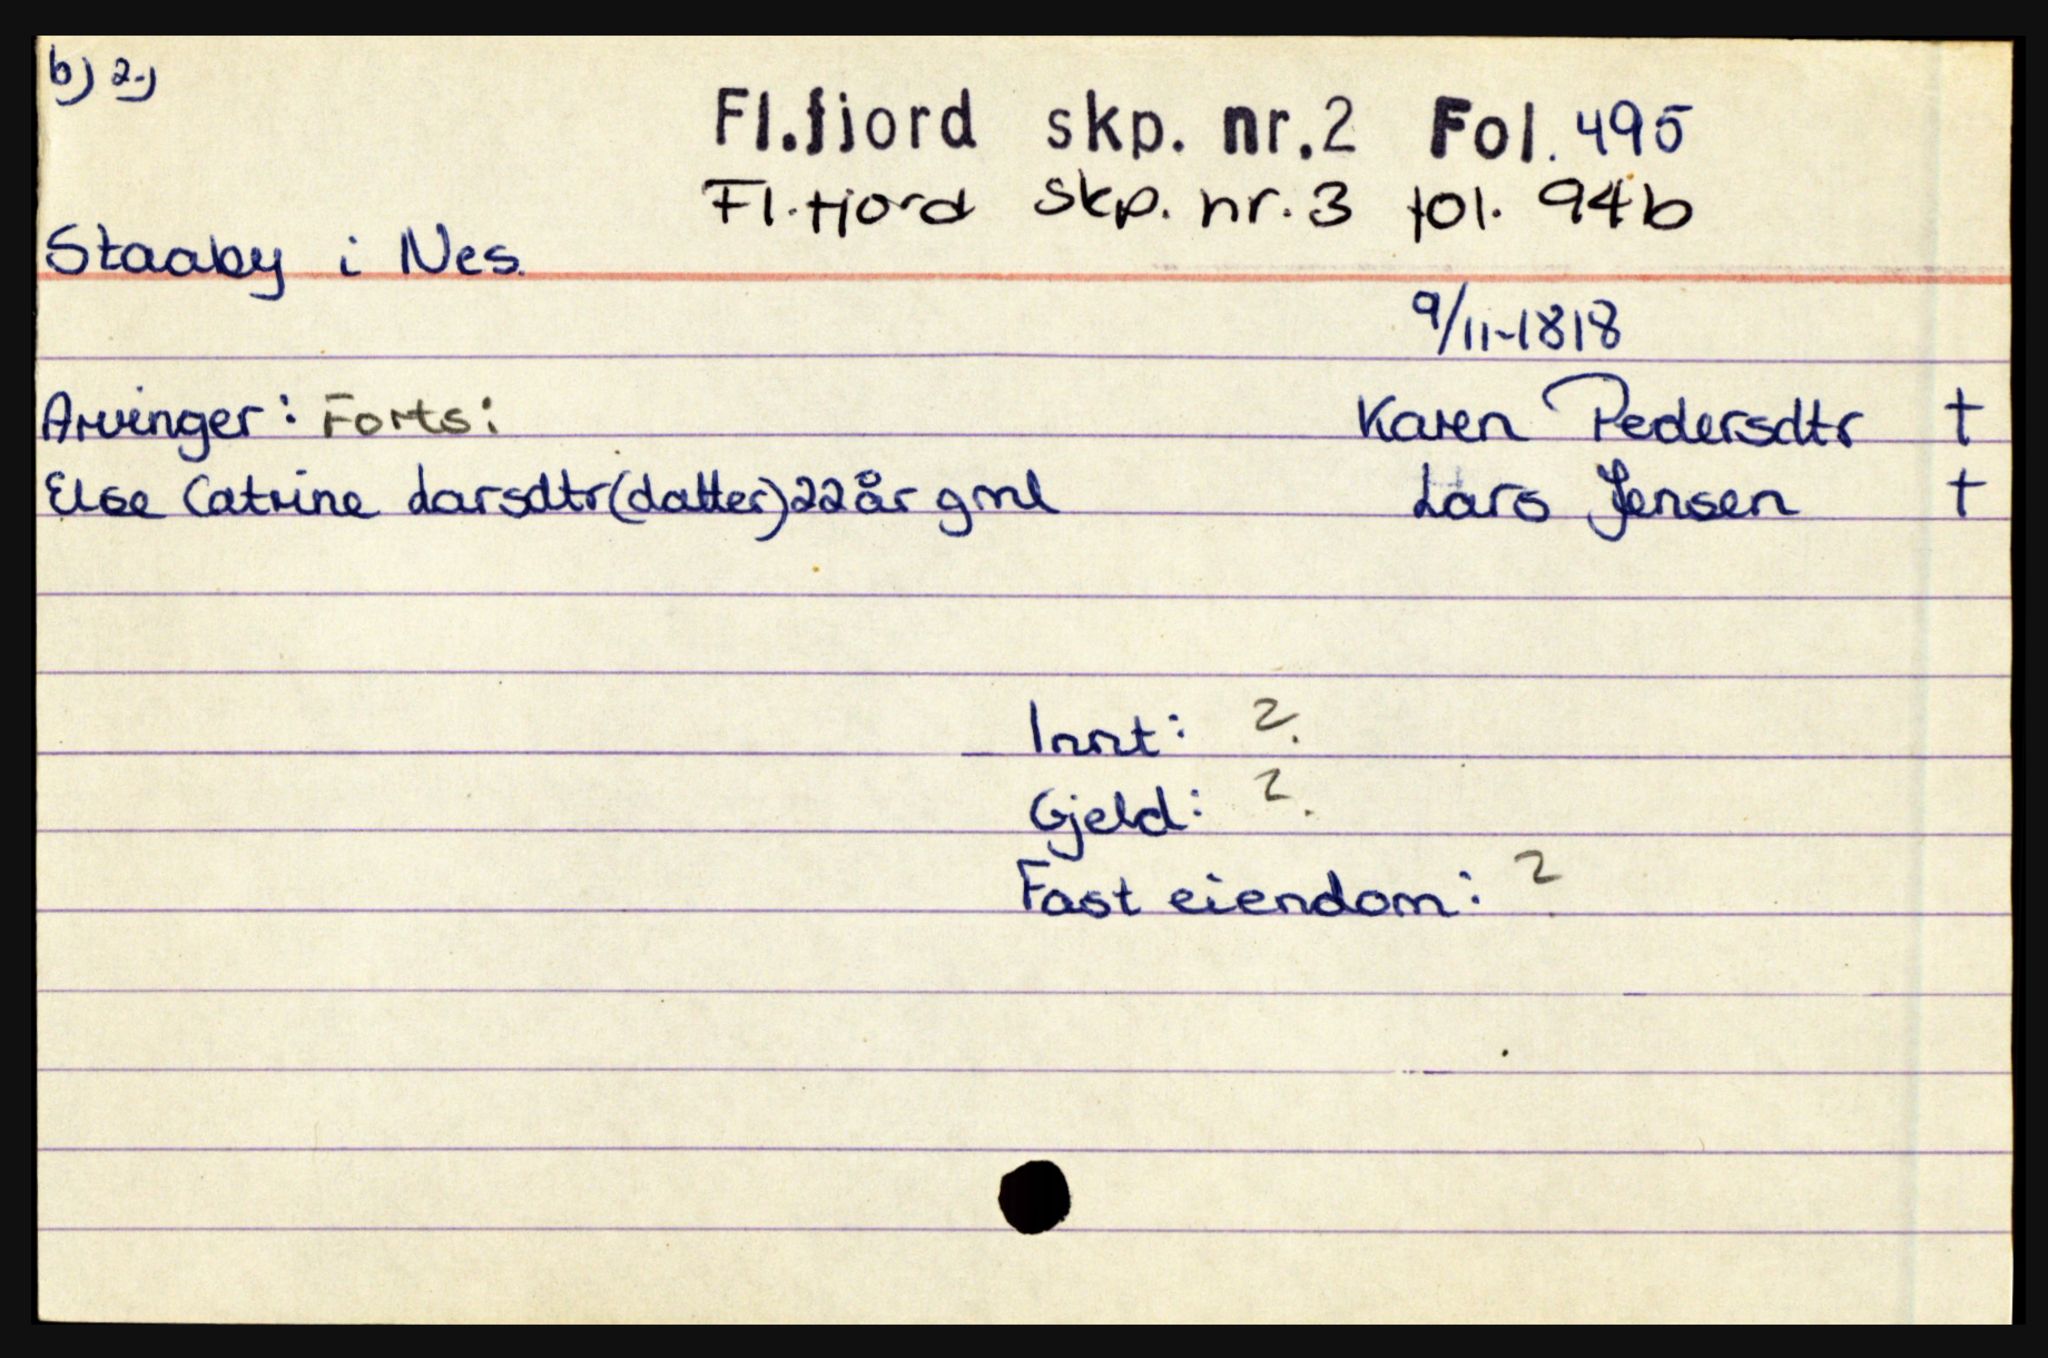 b) 2.)
Fl.fjord skp. nr.2 Fol. 495
Fl.fjord skp. nr.3 fol. 94b
Staaby i Nes.
9/11-1818
Arvinger: Forts: Karen Pedersdtr †
Else Catrine Larsdtr(datter)22år gml Lars Jensen †
Innt: ?
Gjeld: ?
Fast eiendom: ?